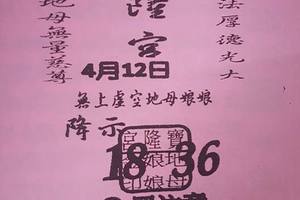 法厚德光大
空
地母無量慈尊
4月12日
無上虛空地母娘娘
降示
寶隆宮
地母
娘娘
印
18 36